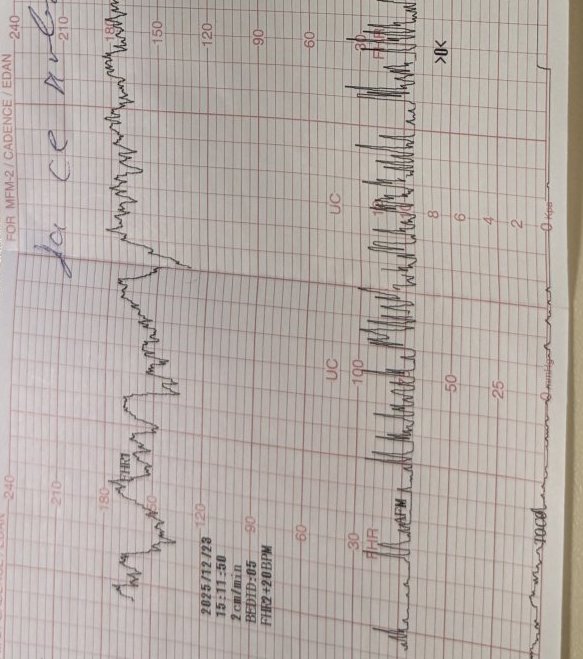 FOR MFM-2 / CADENCE / EDAN
240
210
180
150
120
90
60
30
FHR
>0<
UC
10
8
6
4
2
0 kPa
UC
100
50
25
0 mmHg
240
210
180
150
120
90
60
30
FHR
FHR1
AFM
TOCO
2025/12/23
15:11:50
2cm/min
BEDID:05
FHR2+20BPM